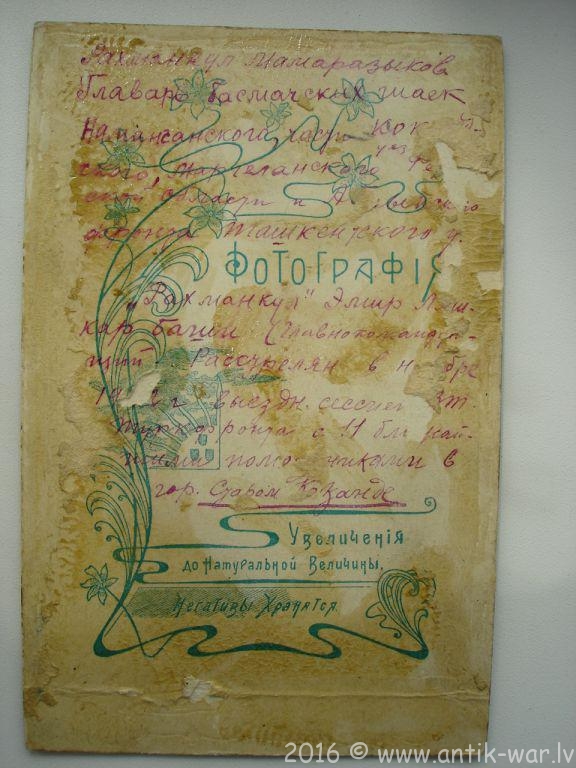 Рахманкул Шамаразыков
Главарь басмаческих шаек
Наманганского, части Кок
ского, Маргеланского
ской области и
фронта Ташкентского у.
ФОТОГРАФІЯ
„Рахманкул" Эмир Ляш-
кар баши (Главнокомандую-
щий Расстрелян в н бре
19 г выездн. сессией
Туркфронта с 11 бли жай-
шими помо никами в
гор. Старом К канде
Увеличенія
до Натуральной Величины.
Негативы Хранятся
2016 © www.antik-war.lv